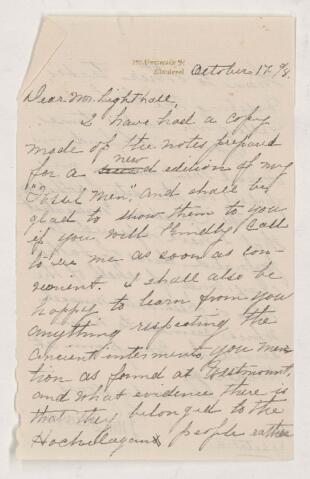 Montreal
October 17. 98.
Dear Mr. Lighthall,
I have had a copy
made of the notes prepared
for a new edition of my
"Fossil Men". and shall be
glad to show them to you
if you will kindly call
to see me as soon as con-
venient. I shall also be
happy to learn from you
anything respecting the
ancient interments you men
tion as found at Westmount,
and what evidence there is
that they belonged to the
Hochelagan people rather